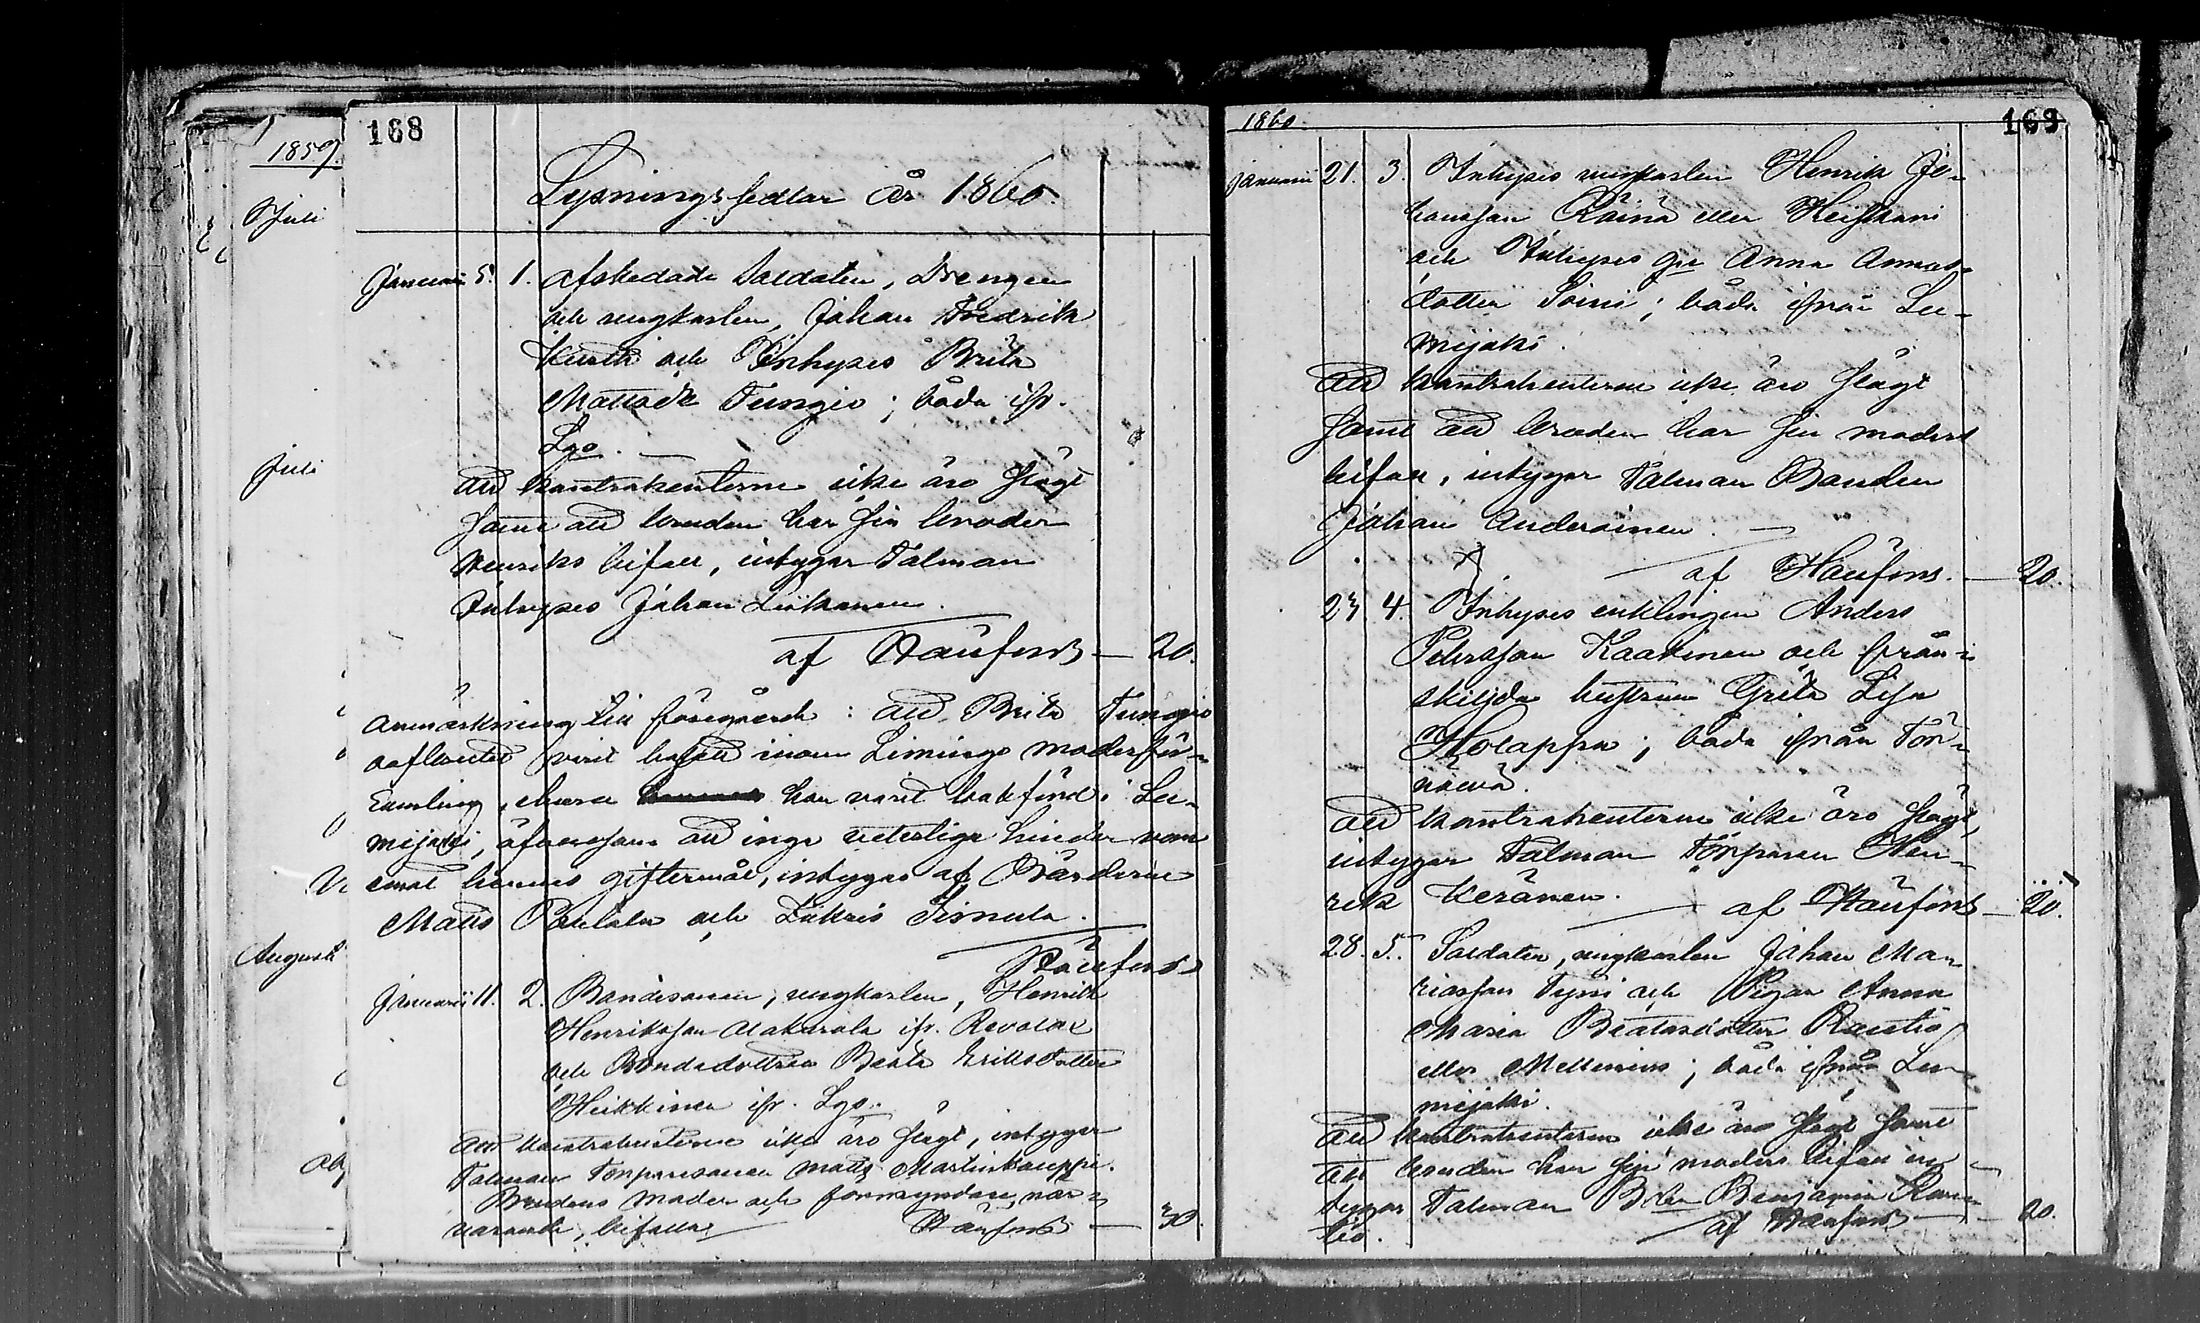 1859
Juli
Juli
Augusti
168
Lysningssedlar år 1860.
Januari 5. 1. Afskedade Soldaten, Drengen
och ungkarlen, Johan Fredrik
och Inhyses Brita
Mattsdr Tungio; båda ifr.
Lgo.
Att kontrahenterne icke äro slägt
samt att bruden har sin broder
Henriks bifall, intygar Talman
Inhyses Johan Liikanen.
af Haufens — 20.
Anmärkning till föregående: att Brita Tungio
oaflåtit varit bosatt inom Limingo moderför-
samling, churu har varit bokförd i Lu-
mijoki, äfvensom att inga veterliga hinder vore
emot hennes giftermål, intygas af Bönderne
Matts och Zakris Simula.
Haufens
Januari 11. 2. Bondesonen, ungkarlen, Henrik
Henriksson Alakarola ifr. Revolax
och Bondedottren Beata Eriksdotter
Heikkinen ifr. Lgo.
Att kontrahenterne icke äro slägt, intygar
Talman Torparesonen Matts Martinkauppi.
Brudens moder och förmyndare, när-
varande, bifalla. Haufens — 30.
1860. 169
Januari 21. 3. Inhyses ungkarlen Henrik Jo-
hansson Räinä eller Heiskani
och Inhyses Anna Annas-
dotter Soini; båda ifrån Lu-
mijoki.
Att kontrahenterne icke äro slägt
samt att bruden har sin moders
bifall, intygar Talman Bonden
Johan Anderainen. —
af Haufens. — 20.
23. 4. Inhyses enklingen Anders
Petersson Kaakinen och från-
skiljda hustrun Greta Lisa
Holappa; båda ifrån Tör-
näwä.
Att kontrahenterne icke äro slägt,
intygar Talman Torparen Hen-
rik Keränen. — af Haufens — 20.
28. 5. Soldaten, ungkarlen Johan Ma-
thiasson Tyni och Pigan Anna
Maria Beatasdotter Rautio
eller Mellenius; båda ifrån Lu-
mijoki.
Att kontrahenterne icke äro slägt samt
att bruden har sin moders bifall in-
tygar Talman Benjamin Rau-
tio. af Haufens — 20.